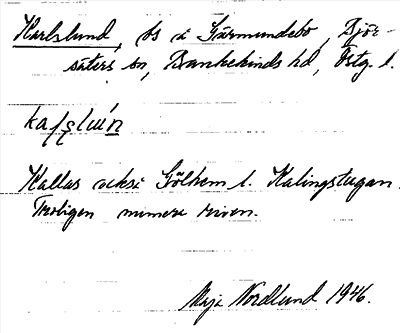 Karlslund, bs å Gärmundebo, Björ-
säters sn, Bankekinds hd, Östg. l.
Kallas också Gölhem l. Kalingstugan.
Troligen numera riven.
Maja Nordlund 1946.